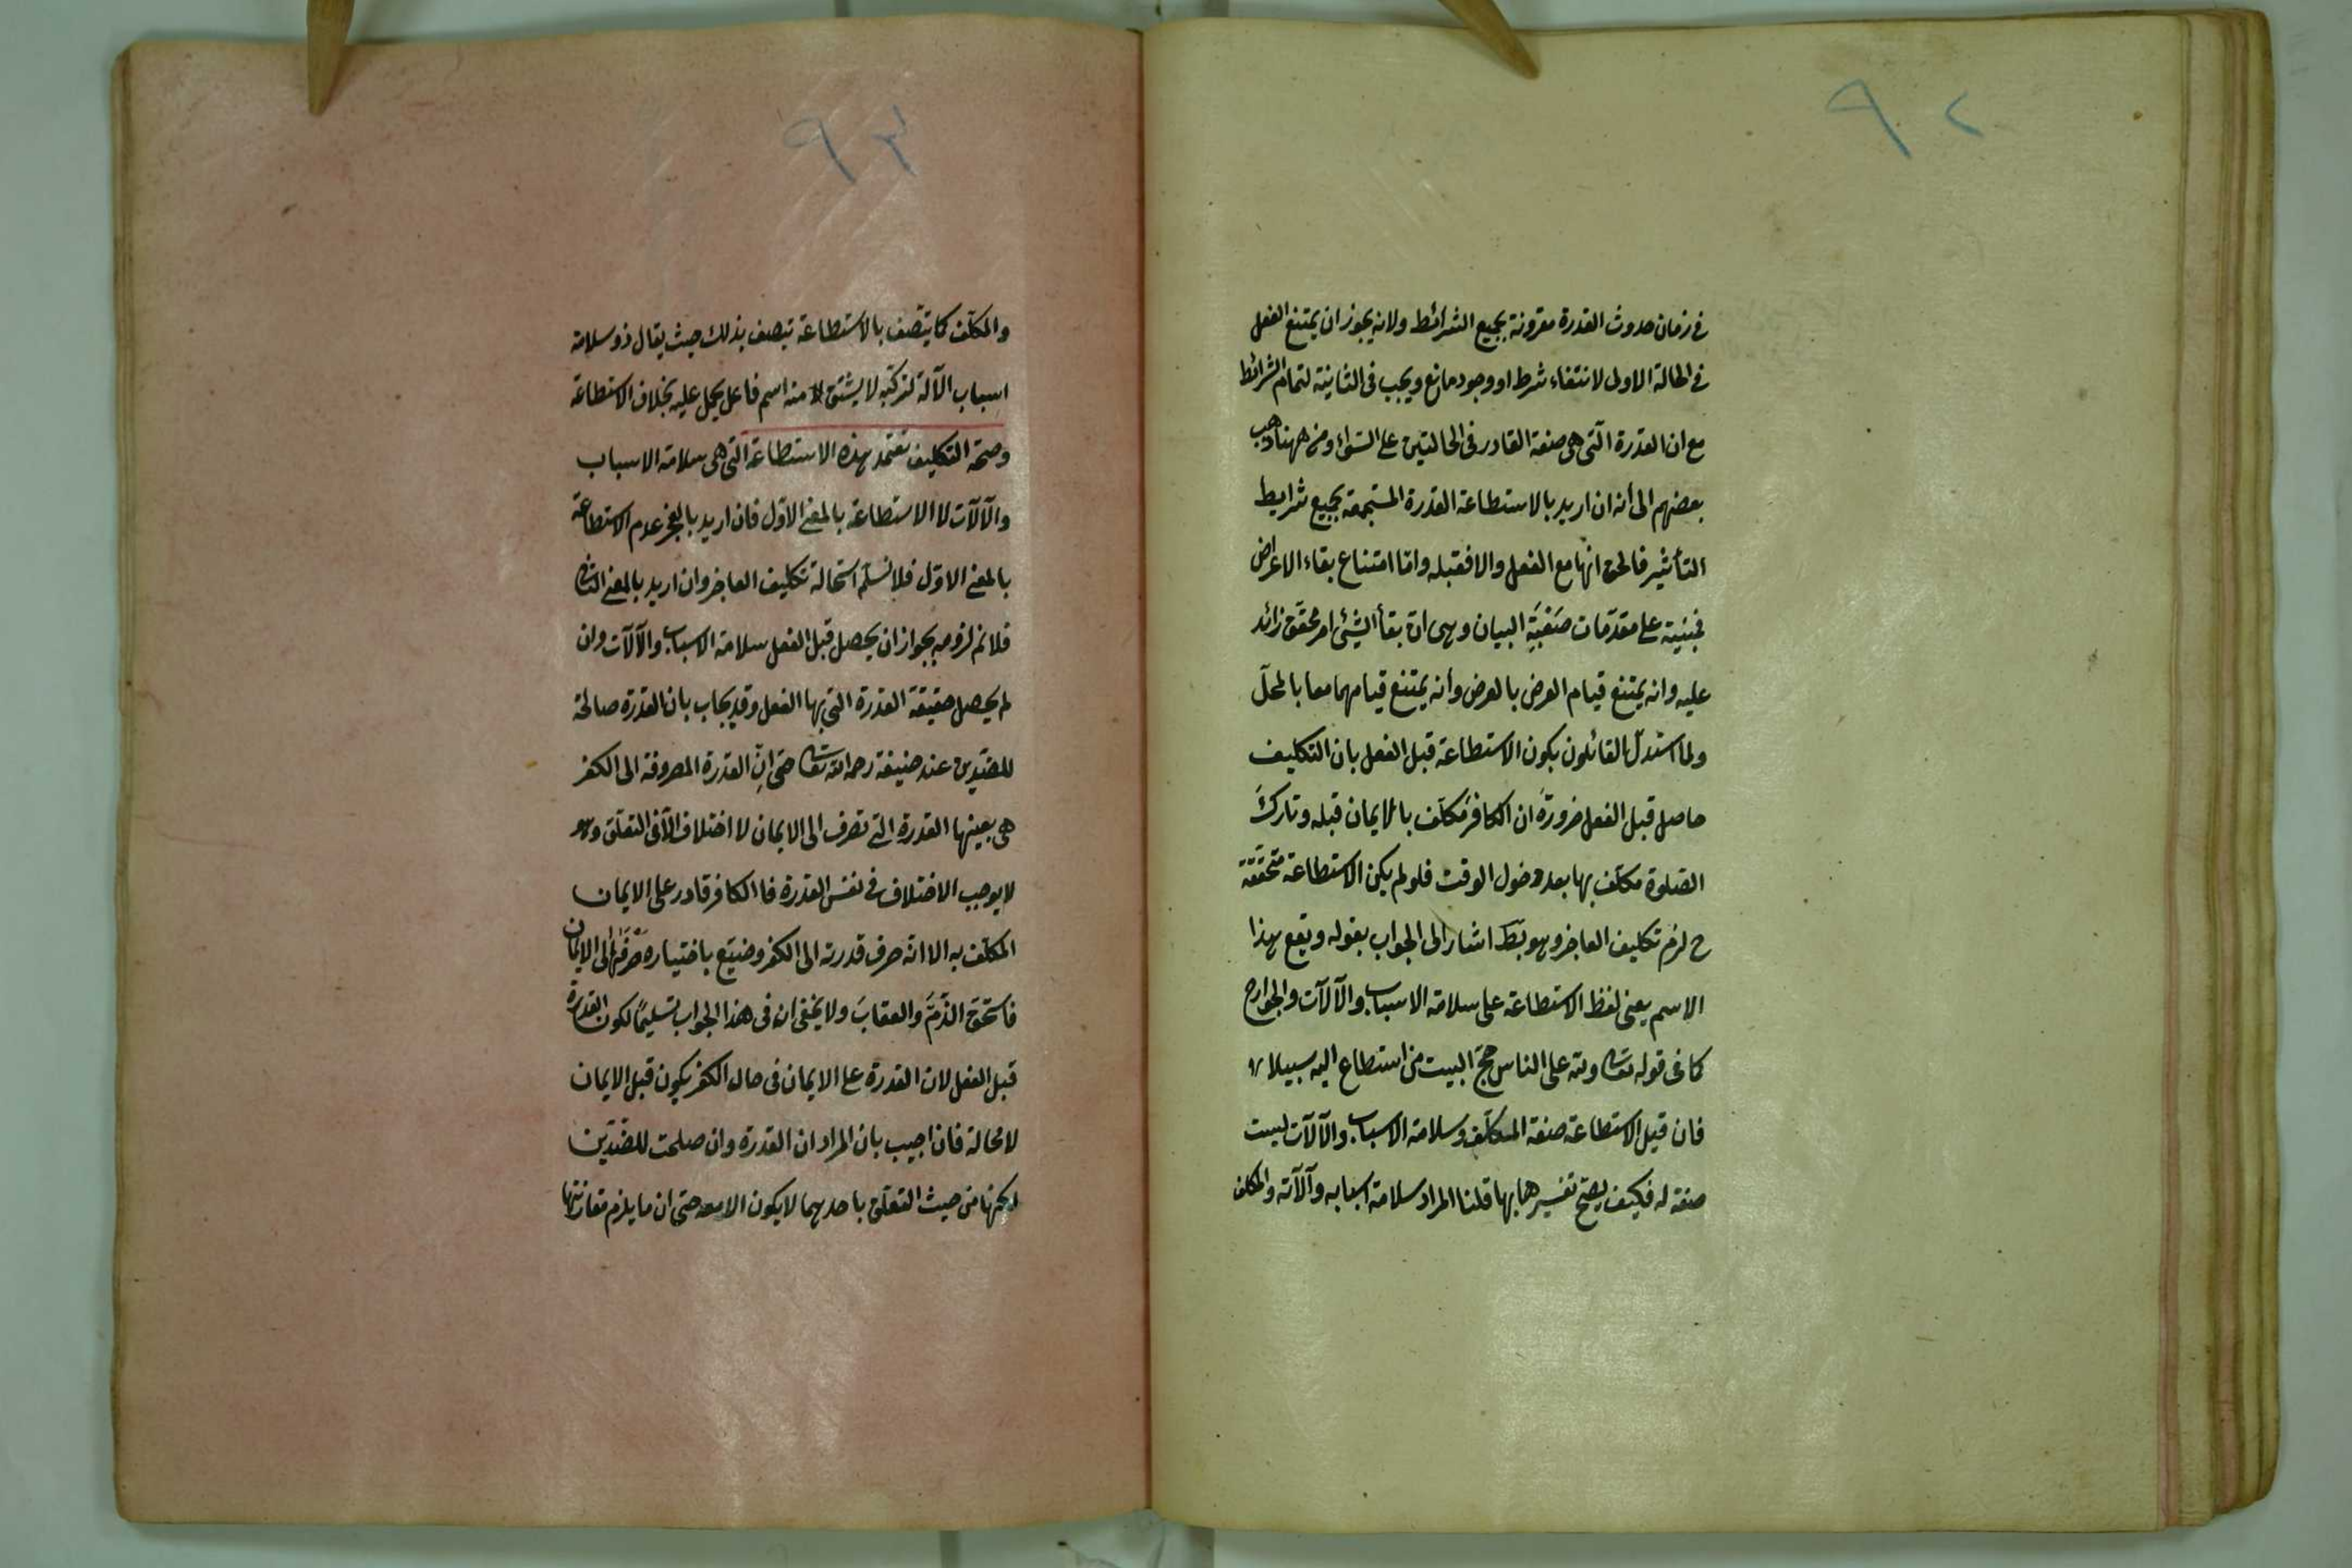 ٩٢
في زمان حدوث القدرة مقرونة بجميع الشرائط ولانه يجوز ان يمتنع الفعل
في الحالة الاولى لانتفاء شرط او وجود مانع ويجب في الثانية لتمام الشرائط
مع ان القدرة الّتى هى صفة القادر فى الحالتين على السّواء ومن ههنا ذهب
بعضهم الى أنه ان اريد بالاستطاعة القدرة المستجمعة بجميع شرايط
التأثير فالحق انّها مع الفعل والا فقبله وامّا امتناع بقاء الاعراض
فمبنيّة على مقدّمات صَعْبَةِ البيان وهى ان بقأ الشئ امر محقّق زائد
عليه وانه يمتنع قيام العرض بالعرض وأنه يمتنع قيامهما معا بالمحلّ
ولما استدلّ القائلون بكون الاستطاعة قبل الفعل بان التكليف
حاصل قبل الفعل ضرورةَ ان الكافرَ مكلّف بالايمان قبله وتاركَ
الصّلوة مكلّف بها بعد دخول الوقت فلو لم يكن الاستطاعة متحقّقة
ح لزم تكليف العاجز وهو بَطَ اشار الى الجواب بقوله ويقع هذا
الاسم يعنى لفظ الاستطاعة على سلامة الاسباب والآلات والجوارح
كما فى قوله تعا ولله على الناس حجّ البيت من استطاع اليه سبيلا
فان قيل الاستطاعة صفة المكلّف وسلامة الاسباب والآلات ليست
صفة له فكيف يصحّ تفسيرها بها قلنا المراد سلامة اسبابه وآلاته والمكلف
٩٣
والمكلّف كما يتّصف بالاستطاعة يتصف بذلك حيث يقال ذو سلامة
اسباب الآلة لتركّبه لا يشتقّ منه اسم فاعل يحمل عليه بخلاف الاستطاعة
وصحّة التكليف تعتمد بهذه الاستطاعة الّتى هى سلامة الاسباب
والآلات لا الاستطاعة بالمعنى الاوّل فان اريد بالعجز عدم الاستطاعة
بالمعنى الاوّل فلا نسلّم استحالة تكليف العاجز وان اريد بالمعنى الثا
فلا نم لزومه بجواز ان يحصل قبل الفعل سلامة الاسباب والآلات وان
لم يحصل حقيقة القدرة التي بها الفعل وقد يجاب بان القدرة صالحة
للضدين عند حنيفة رحمه الله تعا حتى انّ القدرة المصروفة الى الكفر
هى بعينها القدرة التى تصرف الى الايمان لا اختلاف الّا فى التعلّق وهو
لا يوجب الاختلاف في نفس القدرة فا الكافر قادر على الايمان
المكلّف به الا انه صرف قدرته الى الكفر وضيّع باختياره صَرْفَها الى الايمان
فاستحقّ الذّمَّ والعقابَ ولا يخفى ان فى هذا الجواب تسليمًا لكون القدرة
قبل الفعل لان القدرة على الايمان فى حال الكفر يكون قبل الايمان
لا محالة فان اجيب بان المراد ان القدرة وان صلحت للضّدّين
لكنها من حيث التعلّق باحديهما لا يكون الا معه حتى ان ما يلزم مقارنتها